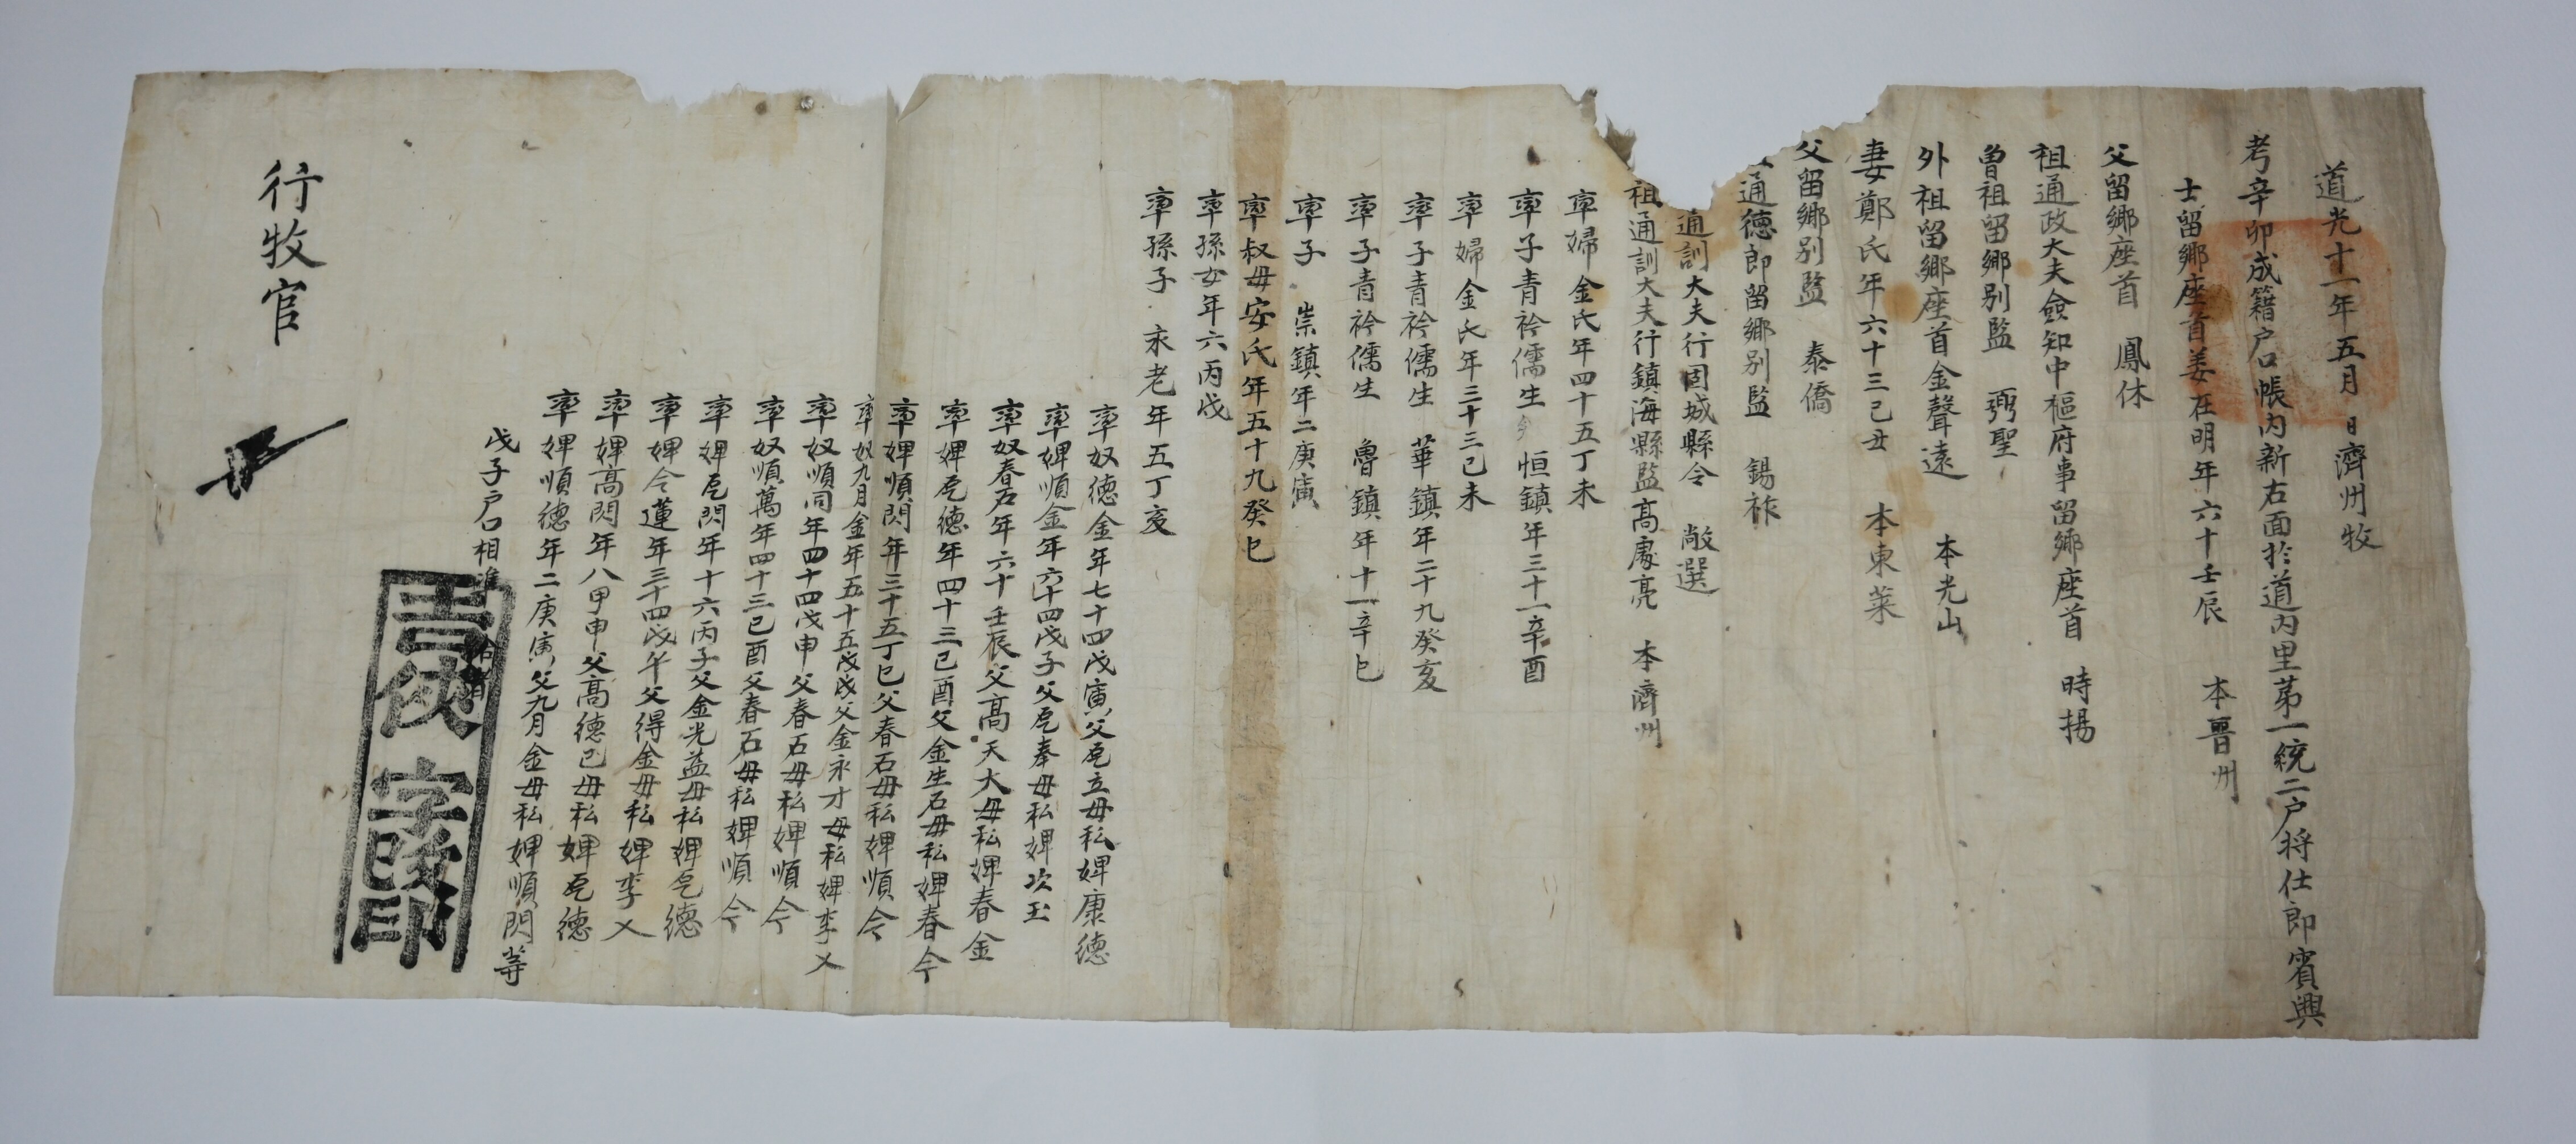 道光十一年五月 日濟州牧
考辛卯成籍户口帳內新右面於道內里苐一統二户將仕郎賓興
士留鄉座首姜在明年六十壬辰 本晋州
父留鄉座首 鳳休
祖通政大夫僉知中樞府事留鄉座首 時揚
曾祖留鄉别監 弼聖
外祖留鄉座首金聲遠 本光山
妻鄭氏年六十三己丑 本東萊
父留鄉别監 泰僑
通德郎留鄉别監 錫祚
通訓大夫行固城縣令 敞選
祖通訓大夫行鎮海縣監高處亮 本濟州
率婦金氏年四十五丁未
率子青衿儒生 恒鎮年三十一辛酉
率婦金氏年三十三己未
率子青衿儒生 華鎮年二十九癸亥
率子青衿儒生 魯鎮年十一辛巳
率子 崇鎮年二庚寅
率叔母安氏年五十九癸巳
率孫女年六丙戌
率孫子 永老年五丁亥
率奴德金年七十四戊寅父㐎立母私婢康德
率婢順金年六十四戊子父㐎奉母私婢次玉
率奴春石年六十壬辰父高天大母私婢春金
率婢㐎德年四十三己酉父金生石母私婢春今
率婢順閃年三十五丁巳父春石母私婢順今
率奴九月金年五十五戊戌父金永才母私婢李乂
率奴順同年四十四戊申父春石母私婢順今
率奴順萬年四十三己酉父春石母私婢順今
率婢㐎閃年十六丙子父金光益母私婢㐎德
率婢今蓮年三十四戊午父得金母私婢李乂
率婢高閃年八甲申父高德已母私婢㐎德
率婢順德年二庚寅父九月金母私婢順閃等
戊子户口相準
行牧官